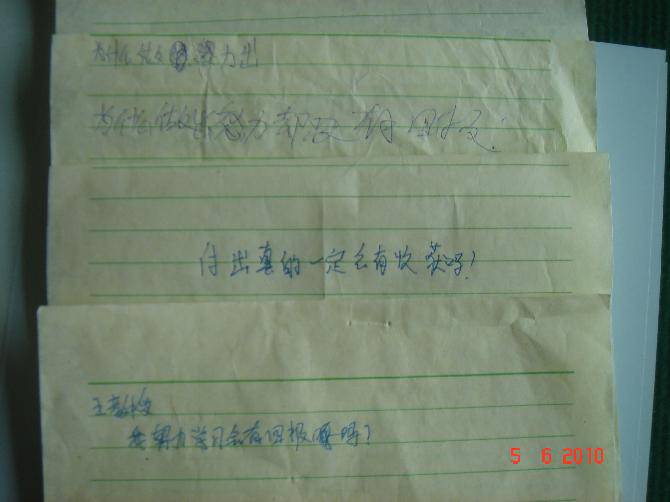 为什么做
力出
为什么做 努力却没有回报
付出真的一定会有收获吗?
努力学习会有回报吗?
5 6 2010